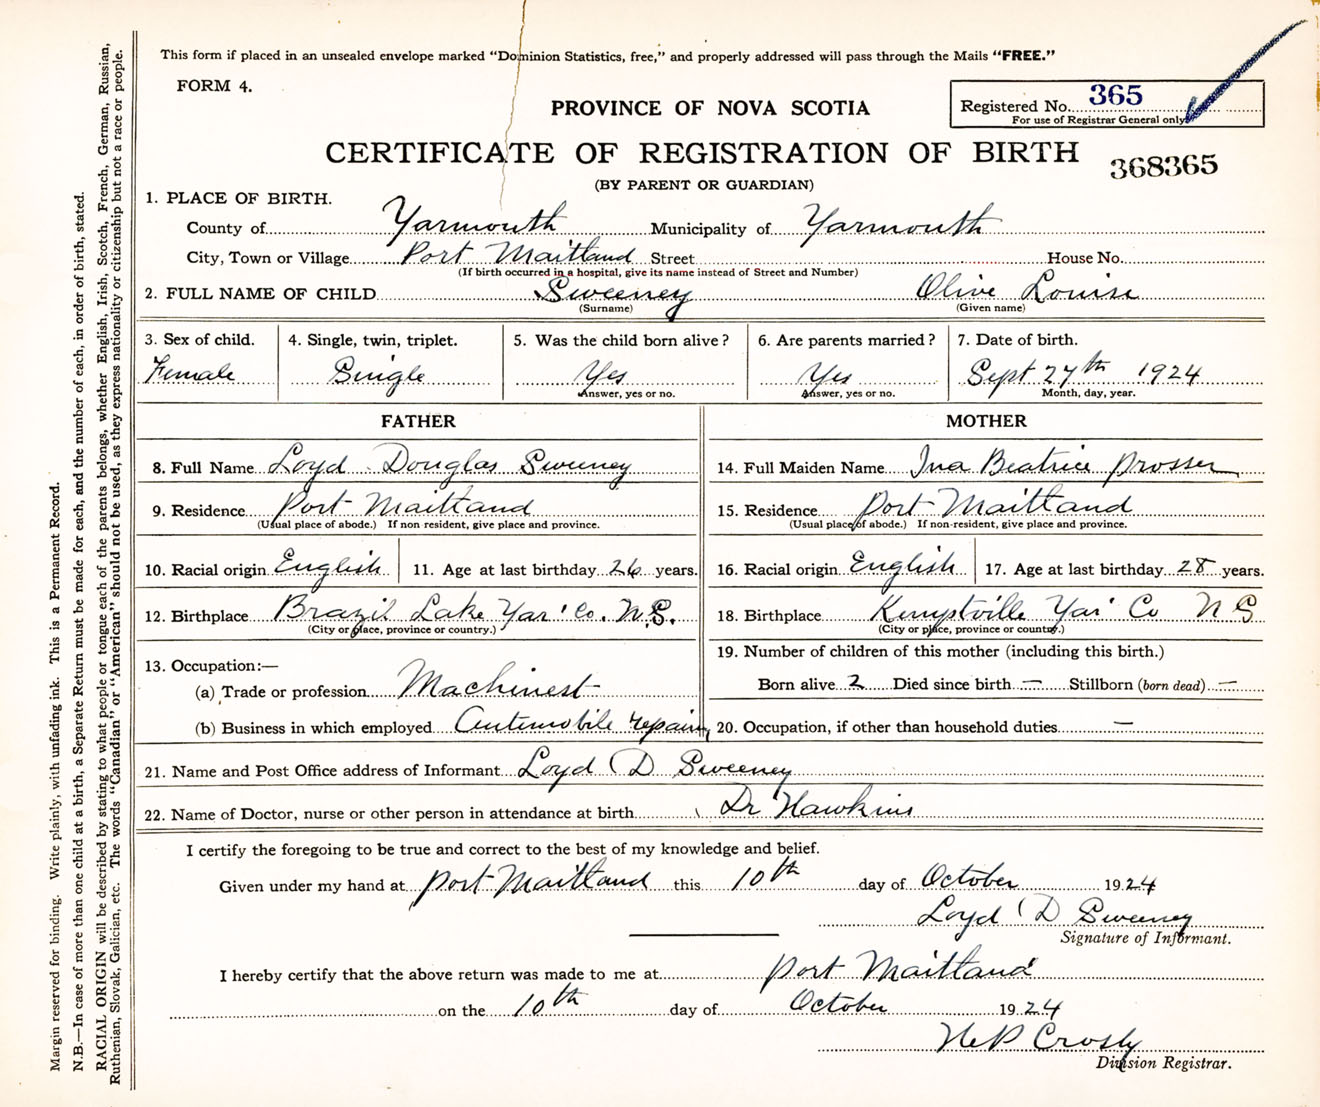 This form if placed in an unsealed envelope marked “Dominion Statistics, free,” and properly addressed will pass through the Mails “FREE.”
FORM 4.
Registered No. 365
For use of Registrar General only
PROVINCE OF NOVA SCOTIA
CERTIFICATE OF REGISTRATION OF BIRTH
368365
(BY PARENT OR GUARDIAN)
1. PLACE OF BIRTH.
County of Yarmouth Municipality of Yarmouth
City, Town or Village Port Maitland Street House No.
(If birth occurred in a hospital, give its name instead of Street and Number)
2. FULL NAME OF CHILD Sweeney Olive Louise
(Surname) (Given name)
3. Sex of child. 4. Single, twin, triplet. 5. Was the child born alive? 6. Are parents married? 7. Date of birth.
Female Single Yes Yes Sept 27th 1924
Answer, yes or no. Answer, yes or no. Month, day, year.
FATHER MOTHER
8. Full Name Loyd Douglas Sweeney 14. Full Maiden Name Ina Beatrice Prosser
9. Residence Port Maitland 15. Residence Port Maitland
(Usual place of abode.) If non-resident, give place and province. (Usual place of abode.) If non-resident, give place and province.
10. Racial origin English 11. Age at last birthday 26 years. 16. Racial origin English 17. Age at last birthday 28 years.
12. Birthplace Brazil Lake Yar' Co. N.S. 18. Birthplace Yar' Co N S
(City or place, province or country.) (City or place, province or country.)
13. Occupation:— 19. Number of children of this mother (including this birth.)
(a) Trade or profession Machinest Born alive 2 Died since birth — Stillborn (born dead) —
(b) Business in which employed Automobile repairing 20. Occupation, if other than household duties —
21. Name and Post Office address of Informant Loyd D Sweeney
22. Name of Doctor, nurse or other person in attendance at birth Dr Hawkins
I certify the foregoing to be true and correct to the best of my knowledge and belief.
Given under my hand at Port Maitland this 10th day of October 1924
Loyd D Sweeney
Signature of Informant.
I hereby certify that the above return was made to me at Port Maitland
on the 10th day of October 1924
Crosby
Division Registrar.
Margin reserved for binding. Write plainly, with unfading ink. This is a Permanent Record.
N.B.—In case of more than one child at a birth, a Separate Return must be made for each, and the number of each, in order of birth, stated.
RACIAL ORIGIN will be described by stating to what people or tongue each of the parents belongs, whether English, Irish, Scotch, French, German, Russian,
Ruthenian, Slovak, Galician, etc. The words “Canadian” or “American” should not be used, as they express nationality or citizenship but not a race or people.